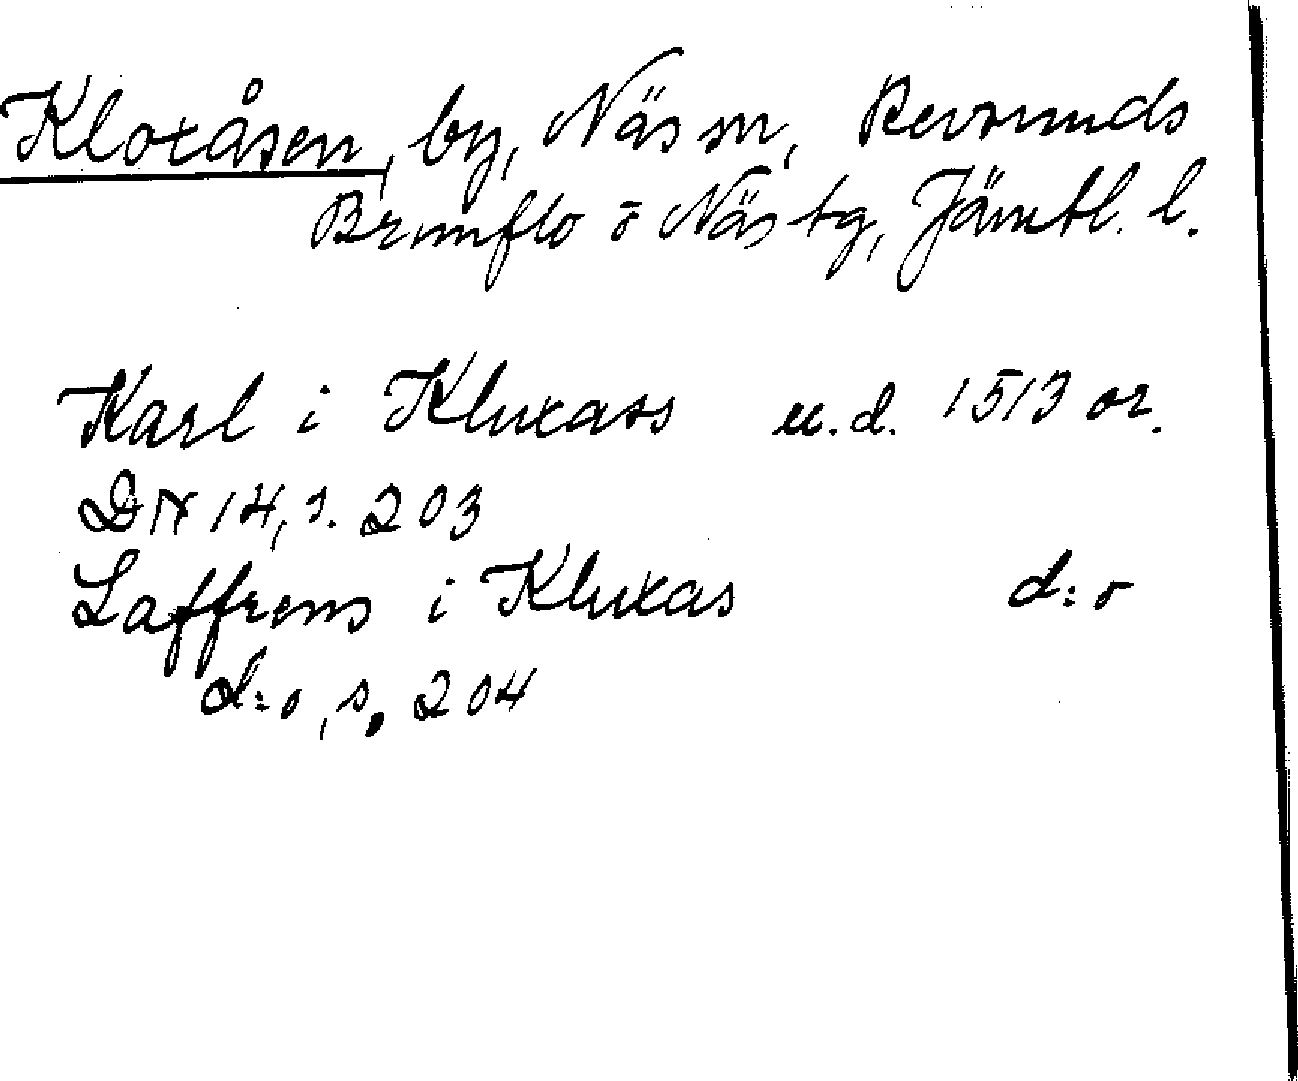 Kloxåsen, by, Näs sn, Revsunds
Brunflo o Näs tg, Jämtl. l.
Karl i Kluxass u.d. 1513 or.
DN 14, s. 203
Laffrens i Kluxas d:o
d:o, s. 204